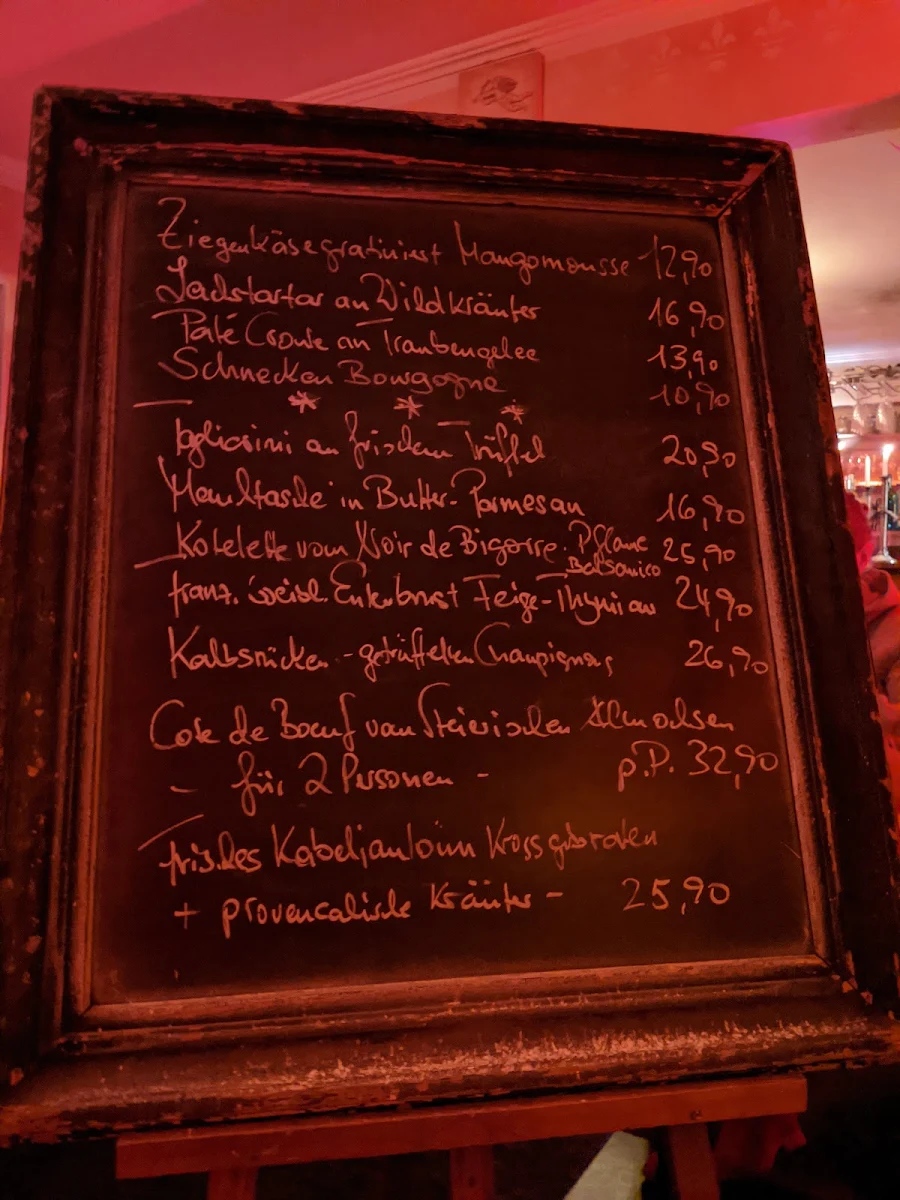 Ziegenkäse gratiniert Mangomousse 12,90
Lachstartar an Wildkräuter 16,90
Paté Croute an Traubengelee 13,90
Schnecken Bourgogne 10,90
* * *
Tagliarini an frischem Trüffel 20,90
Maultasche in Butter-Parmesan 16,90
Kotelette vom Noir de Bigorre. Pflaume 25,90
Balsamico
franz. weibl. Entenbrust Feige-Thymian 24,90
Kalbsrücken - getrüffelten Champignons 26,90
Cote de Boeuf vom Steierischen Almochsen
- für 2 Personen - p.P. 32,90
frisches Kabeljau kross gebraten
+ provencalische Kräuter - 25,90